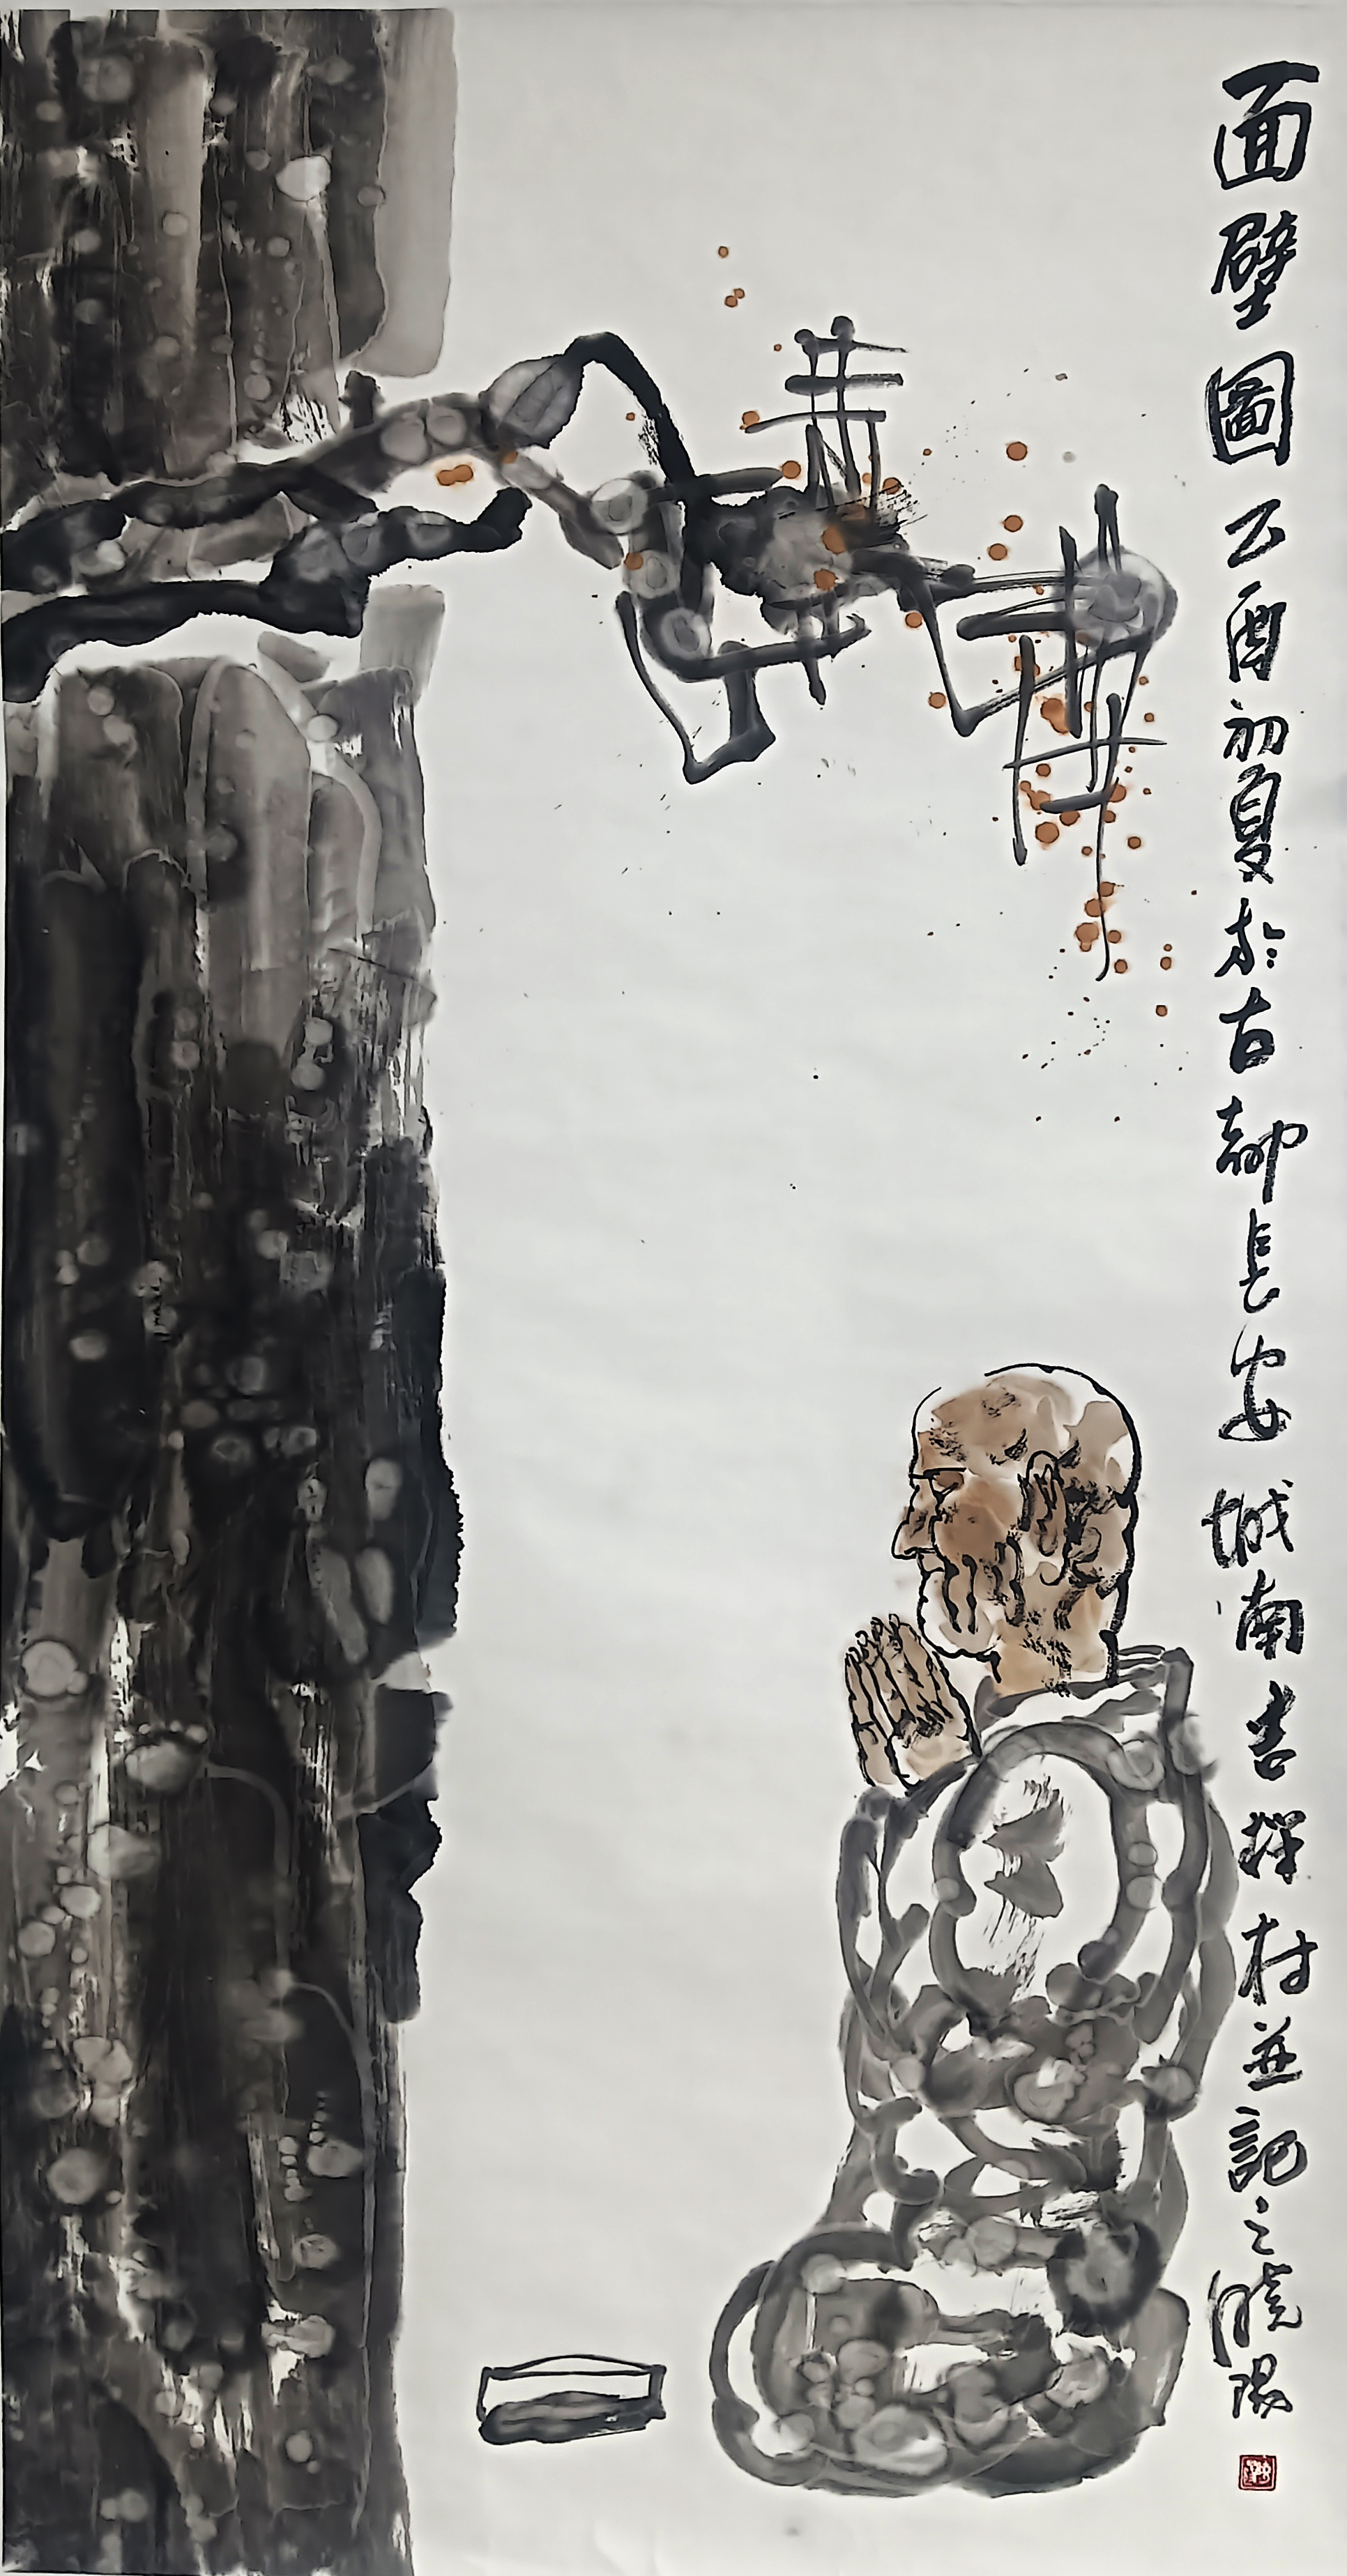 面壁圖乙酉初夏於古都長安城南吉祥村並記之曉陽